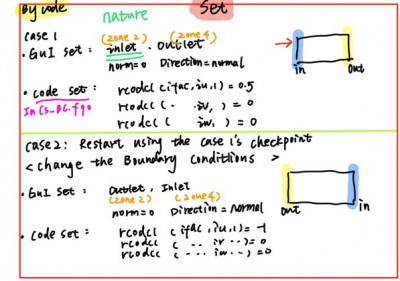 By code
nature
Set
case 1
(zone 2) (zone 4)
• GUI set : inlet . Outlet
norm=0 Direction=normal
in out
• code set : rcodcl (ifac, iu, 1) = 0.5
In CS_BC.f90 rcodcl ( . iv, ) = 0
rcodcl ( iw, ) = 0
case 2 : Restart using the case 1's checkpoint
< change the Boundary Conditions >
• GUI set : Outlet , Inlet
(zone 2) (zone 4)
norm=0 Direction = normal
out in
• Code set : rcodcl (ifac, iu, 1) = -1
rcodcl ( ... iv ..) = 0
rcodcl ( ... iw ..) = 0